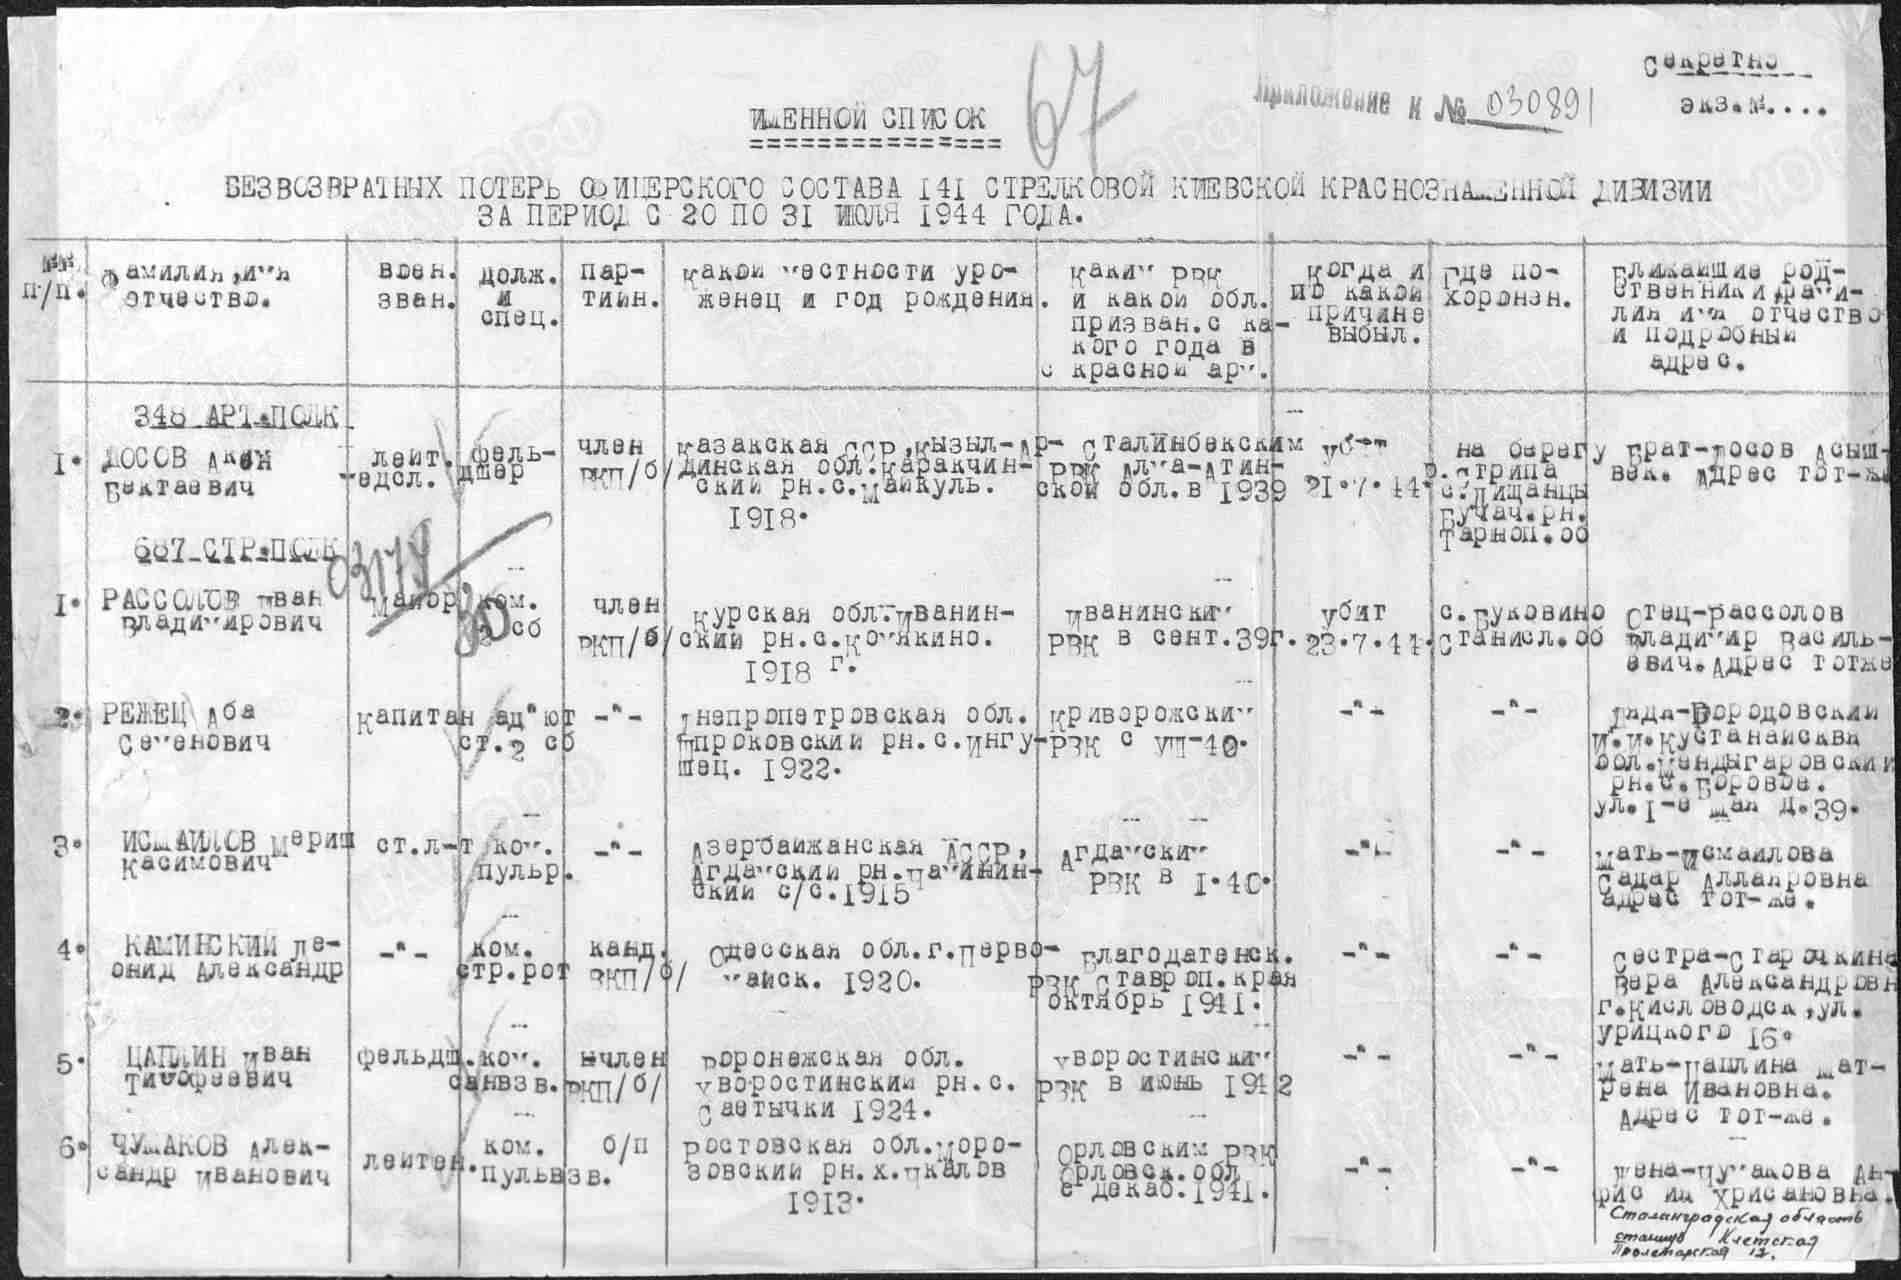 Секретно
экз.№....
Приложение к № 030891
67
ИМЕННОЙ СПИСОК
БЕЗВОЗВРАТНЫХ ПОТЕРЬ ОФИЦЕРСКОГО СОСТАВА 141 СТРЕЛКОВОЙ КИЕВСКОЙ КРАСНОЗНАМЕННОЙ ДИВИЗИИ
ЗА ПЕРИОД С 20 ПО 31 ИЮЛЯ 1944 ГОДА.
№№ п/п.
Фамилия,имя
отчество.
воен.
зван.
долж.
и
спец.
пар-
тийн.
Какой местности уро-
женец и год рождения.
Каким РВК
и какой обл.
призван.с ка-
кого года в
с красной арм.
Когда и
по какой
причине
выбыл.
Где по-
хоронен.
Ближайшие род-
ственники,фами-
лия имя отчество
и подробный
адрес.
348 АРТ.ПОЛК
1.
ДОСОВ Акен
Бектаевич
лейт.
медсл.
фель-
дшер
член
ВКП/б/
Казакская ССР,Кызыл-Ар-
динская обл.Каракчин-
ский рн.с.Майкуль.
1918.
Сталинбекским
РВК Алма-Атин-
ской обл.в 1939
убит
21.7.44.
на берегу
р.Стрипа
с.Пищанцы
Бучач.рн.
Тарноп.об
Брат-Досов Асыш-
бек. Адрес тот-же
687 СТР.ПОЛК
03178
80
1.
РАССОЛОВ Иван
Владимирович
майор,
ком.
2 сб
член
ВКП/б/
Курская обл.Иванин-
ский рн.с.Комякино.
1918 г.
Иванинским
РВК в сент.39г.
Убит
23.7.44.
с.Буковино
Станисл.об
Отец-Рассолов
Владимир Василь-
евич.Адрес тотже
2.
РЕЖЕЦ Аба
Семенович
Капитан
ад"ют
ст.2 сб
-"-
Днепропетровская обл.
Широковский рн.с.Ингу-
шец. 1922.
Криворожским
РВК с VIII-40.
-"-
-"-
Дядя-Бородовский
И.И.Кустанайская
обл.Мендыгаровский
рн.с.Боровое.
ул.1-е Мая д.39.
3.
ИСМАИЛОВ Мериш
Касимович
ст.л-т
ком.
пульр.
-"-
Азербайжанская АССР,
Агдамский рн.
ский с/с.1915
Агдамским
РВК в 1.40.
-"-
-"-
Мать-Исмаилова
Садар Аллаяровна
адрес тот-же.
4.
КАМИНСКИЙ Ле-
онид Александр
-"-
ком.
стр.рот
канд.
ВКП/б/
Одесская обл.г.Перво-
майск. 1920.
Благодатенск.
РВК Ставроп.края
октябрь 1941.
-"-
-"-
Сестра-Старочкина
Вера Александровн
г.Кисловодск,ул.
Урицкого 16.
5.
ЦАПЛИН Иван
Тимофеевич
фельдш.
ком.
санвзв.
член
ВКП/б/
Воронежская обл.
Хворостинский рн.с.
Саетычки 1924.
Хворостинским
РВК в июнь 1942
-"-
-"-
Мать-Цаплина Мат-
рена Ивановна.
Адрес тот-же.
6.
ЧУМАКОВ Алек-
сандр Иванович
лейтен.
ком.
пульвзв.
б/п
Ростовская обл.Моро-
зовский рн.х.Чкалов
1913.
Орловским РВК
Орловск.обл
с декаб.1941.
-"-
-"-
Жена-Чумакова Ан-
фис ия Хрисановна.
Сталинградская область
станица Клетская
Пролетарская 12.